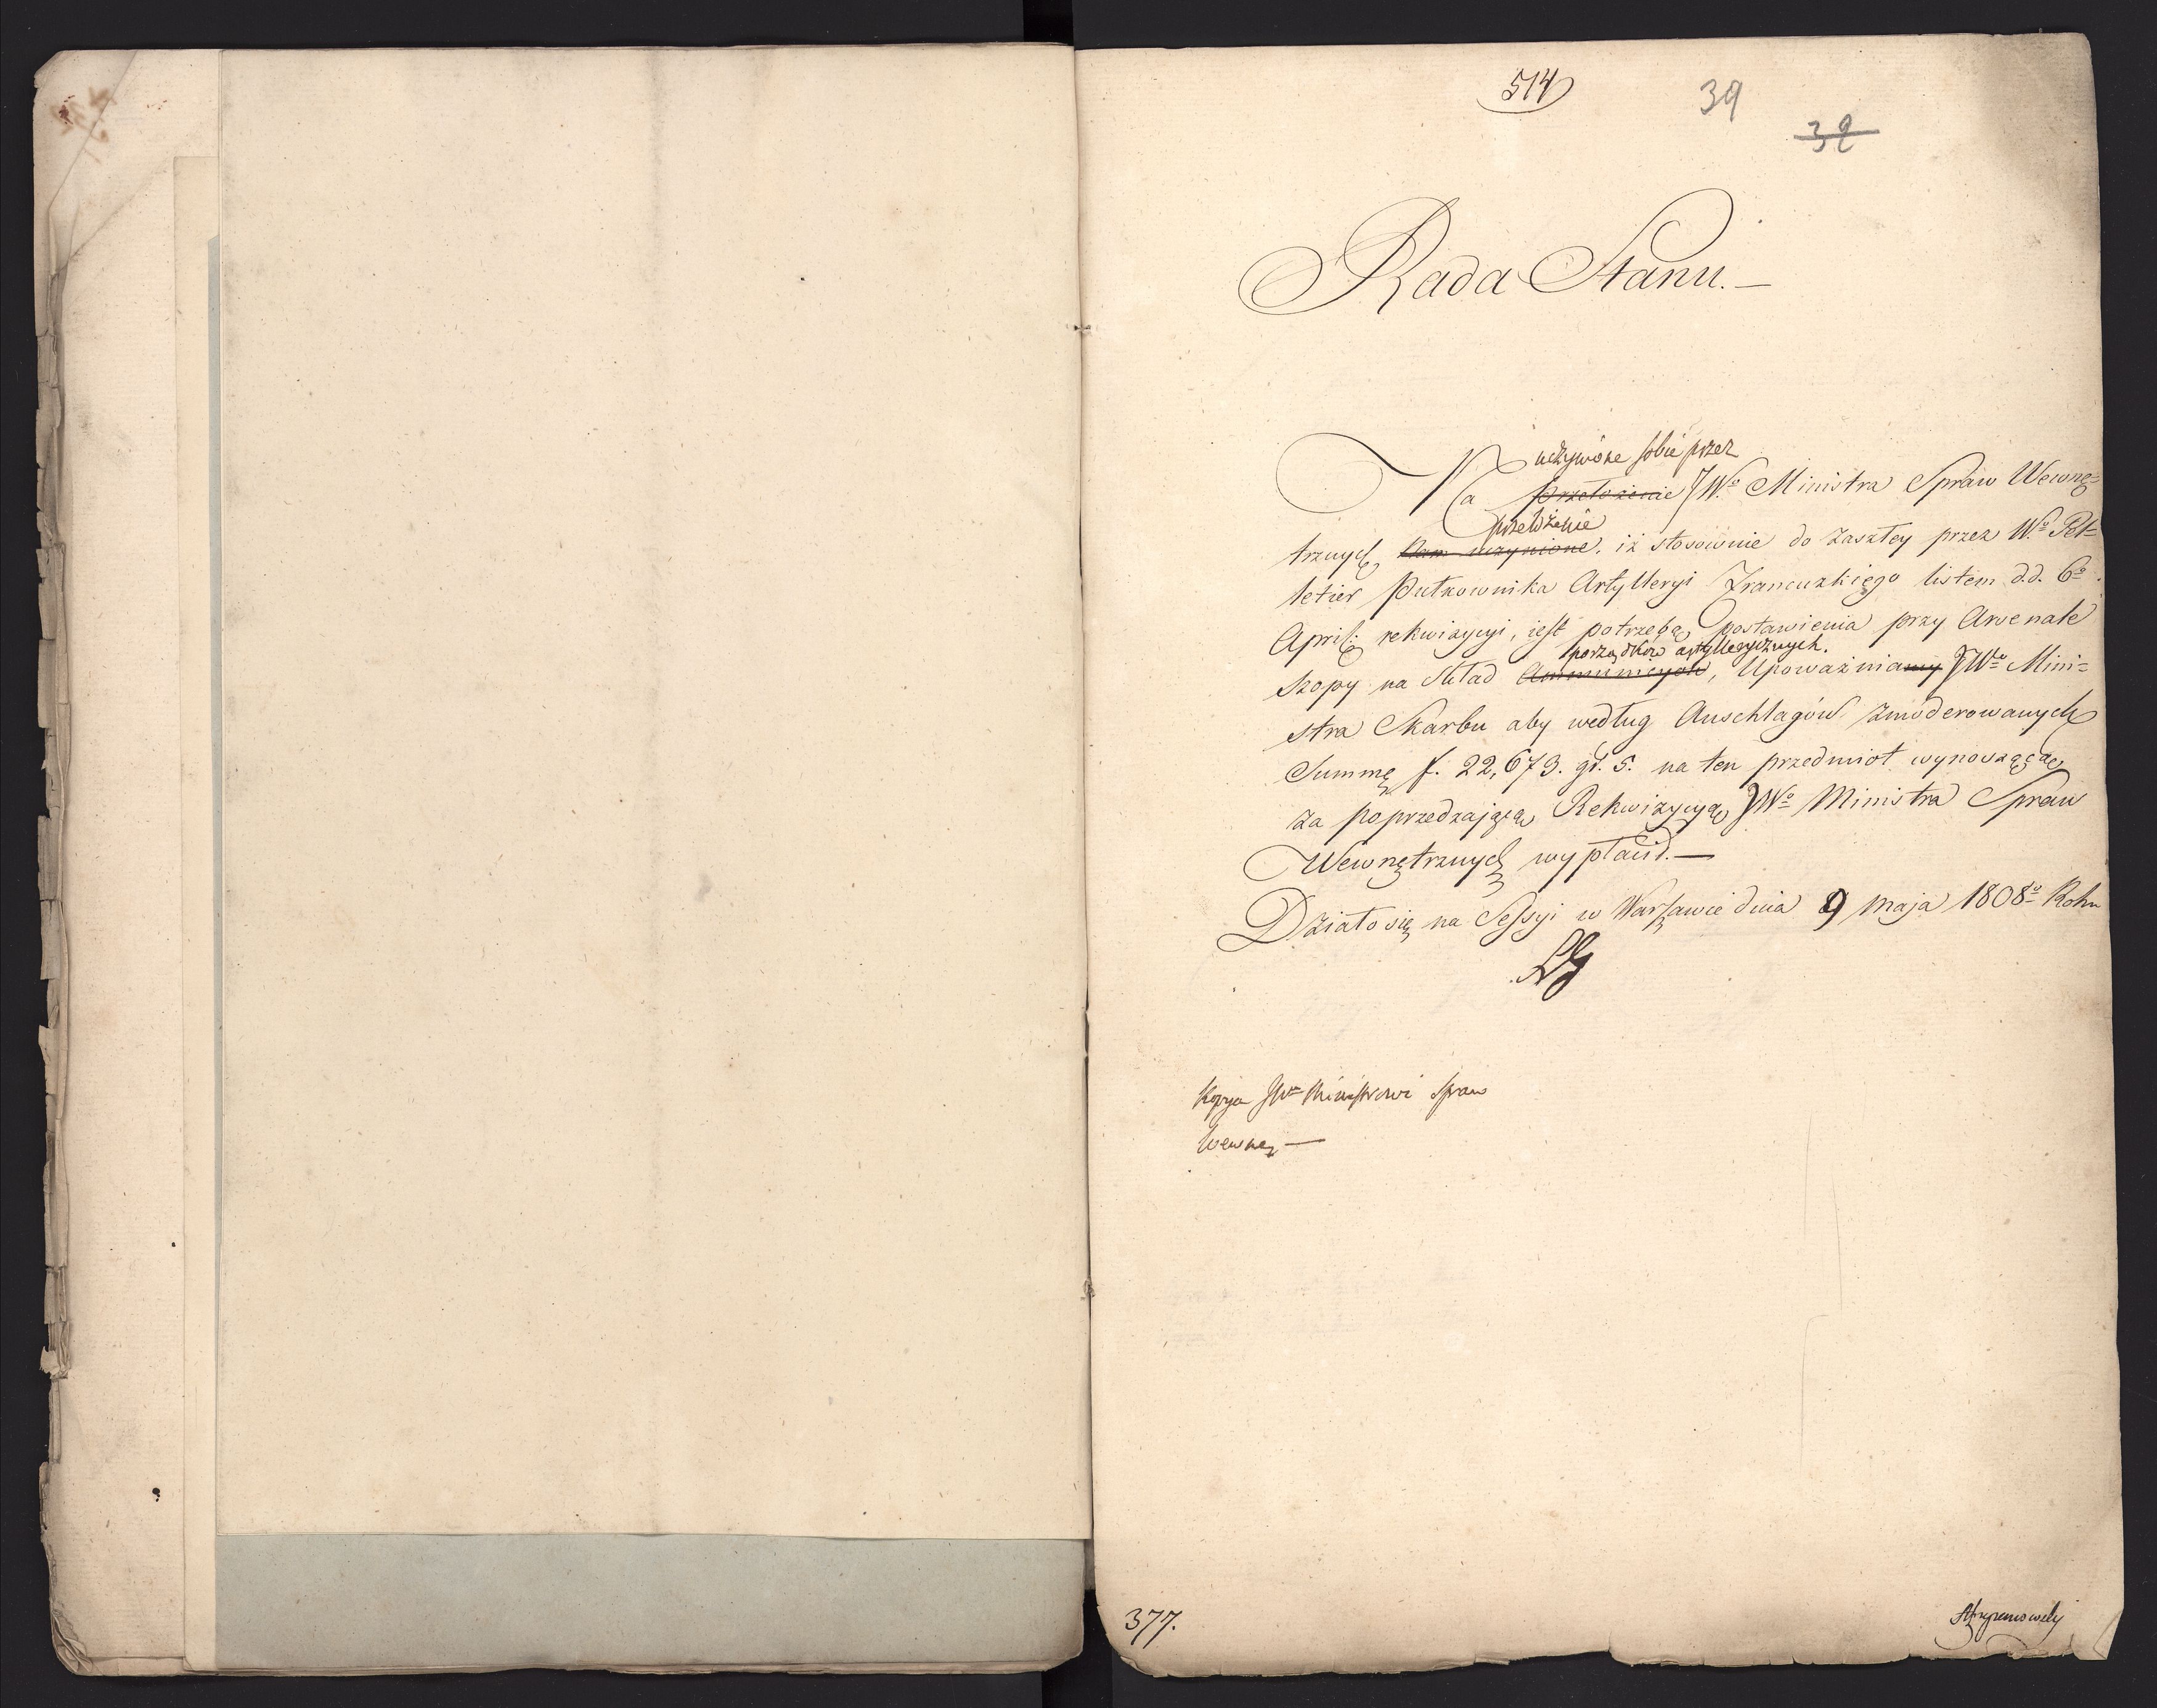 514
39
32
Rada Stanu.—
uczynione sobie przez
Na Przełożenie JWº Ministra Spraw Wewnę=
przełożenie
trznych, Nam uczynione, iż stosownie do zaszłey przez Wº Pel=
letier Pułkownika Artylleryi Francuzkiego listem d.d. 6º
April: rekwizycyi, iest potrzebą postawienia przy Arsenale
porządków artyllerycznych.
Szopy na Skład Ammunicyow, Upoważniamy JWº Mini=
stra Skarbu aby według Anschlagów zmoderowanych
Summę f. 22,673. gr. 5. na ten przedmiot wynoszącą
za poprzedzającą Rekwizycyą JWº Ministra Spraw
Wewnętrznych wypłacił.—
Działo się na Sessyi w Warszawie dnia 9 Maja 1808º Roku
Kopya JWº Ministrowi Spraw
Wewnę —
377.